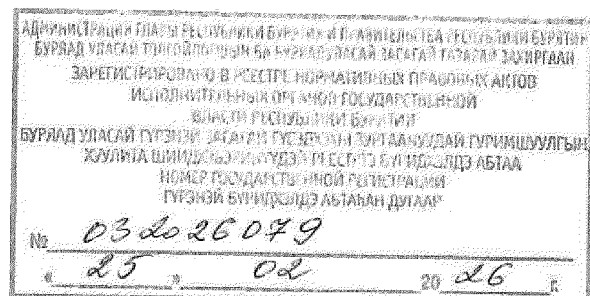 АДМИНИСТРАЦИЯ ГЛАВЫ РЕСПУБЛИКИ БУРЯТИЯ И ПРАВИТЕЛЬСТВА РЕСПУБЛИКИ БУРЯТИЯ
БУРЯАД УЛАСАЙ ТОЛГОЙЛОГШЫН БА БУРЯАД УЛАСАЙ ЗАСАГАЙ ГАЗАРАЙ ЗАХИРГААН
ЗАРЕГИСТРИРОВАНО В РЕЕСТРЕ НОРМАТИВНЫХ ПРАВОВЫХ АКТОВ
ИСПОЛНИТЕЛЬНЫХ ОРГАНОВ ГОСУДАРСТВЕННОЙ
ВЛАСТИ РЕСПУБЛИКИ БУРЯТИЯ
БУРЯАД УЛАСАЙ ГҮРЭНЭЙ ЗАСАГАЙ ГҮЙСЭДХЭХЫ ЗУРГААНУУДАЙ ГУРИМШУУЛГЫН
ХУУЛИТА РЕЕСТРТЭ БҮРИДХЭЛДЭ АБТАА
НОМЕР ГОСУДАРСТВЕННОЙ РЕГИСТРАЦИИ
ГҮРЭНЭЙ БҮРИДХЭЛДЭ АБТАҺАН ДУГААР
№ 032026079
« 25 » 02 20 26 г.